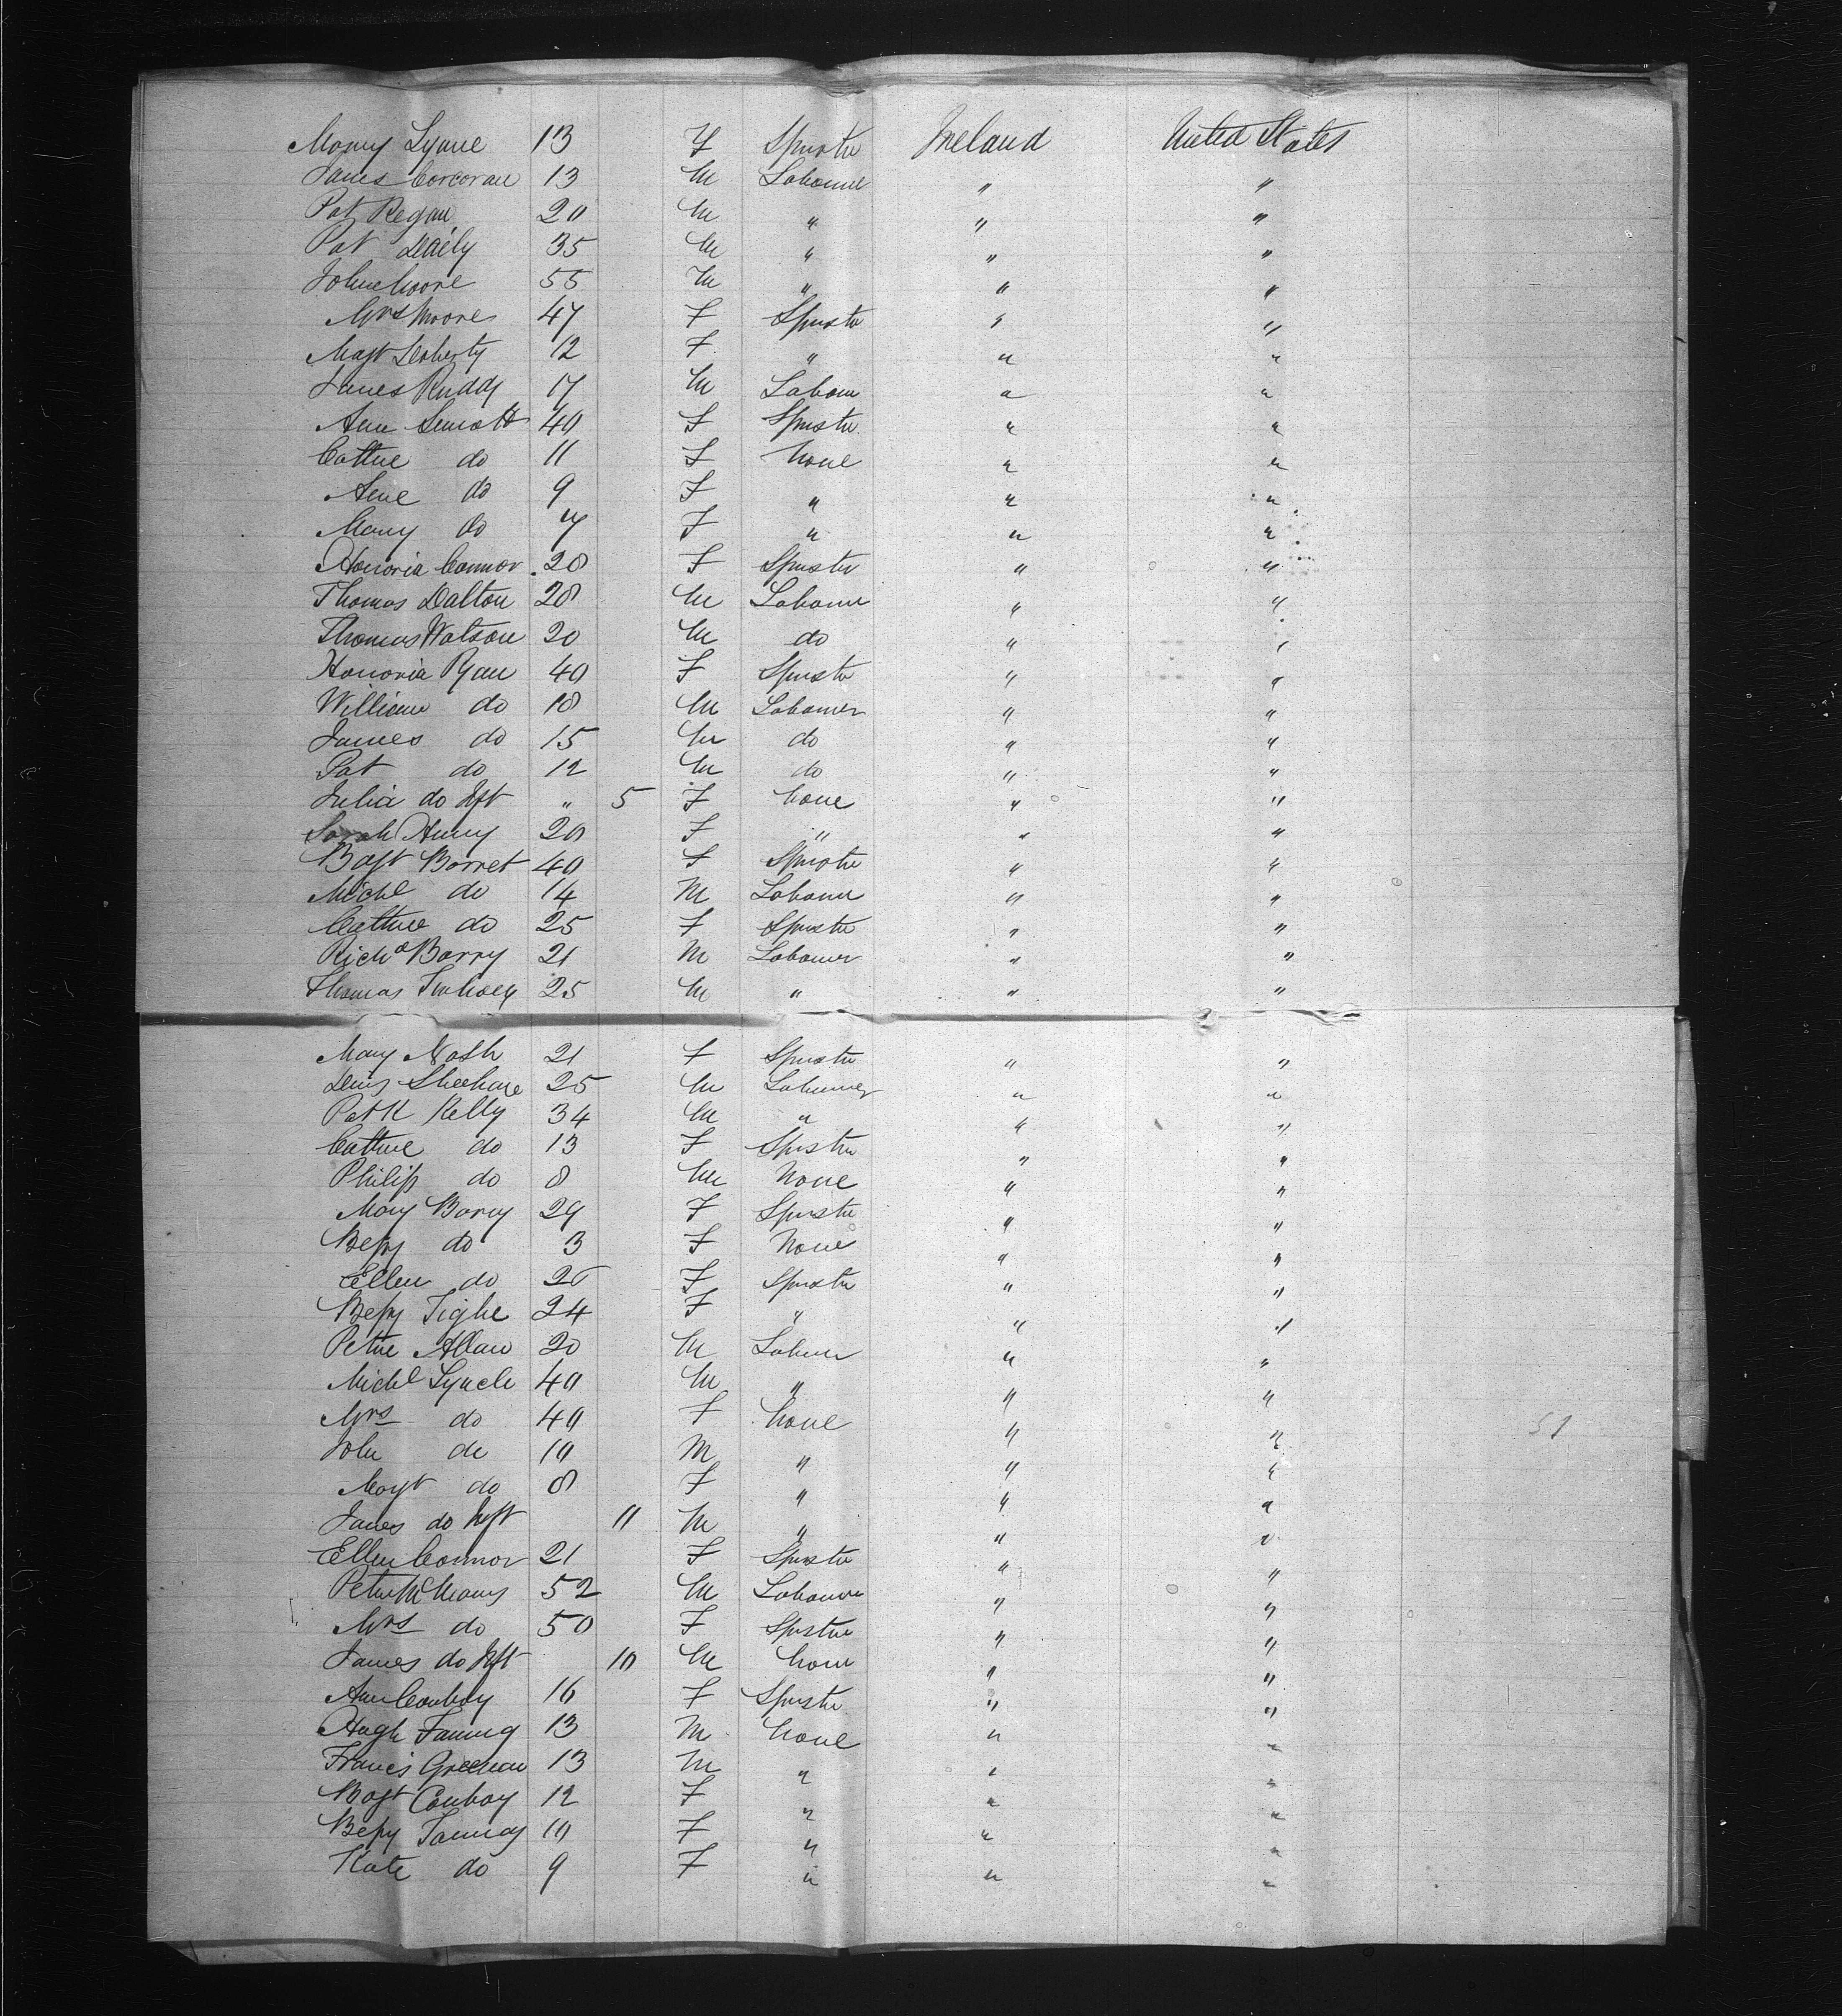 Mary Lyane 13 F Spinster Ireland United States
James Corcoran 13 M Labourer " "
Pat Regan 20 M " " "
Pat Daily 35 M " " "
John Moore 55 M " " "
Mrs Moore 47 F Spinster " "
Magt Doherty 12 F " " "
James Ruddy 17 M Labour " "
Ann Sinnott 40 F Spinster " "
Cathne do 11 F None " "
Ann do 9 F " " "
Mary do 7 F " " "
Honoria Connor 20 F Spinster " "
Thomas Dalton 28 M Labourer " "
Thomas Watson 20 M do " "
Honoria Ryan 40 F Spinster " "
William do 18 M Labourer " "
James do 15 M do " "
Pat do 12 M do " "
Julia do Inft " 5 F None " "
Sarah 20 F " " "
Bagt Barret 40 F Spinster " "
Michl do 14 M Labourer " "
Cathne do 25 F Spinster " "
Richd Barry 21 M Labourer " "
Thomas 25 M " " "
Mary Nash 21 F Spinster " "
Denis Sheehane 25 M Labourer " "
Patk Kelly 34 M " " "
Cathne do 13 F Spinster " "
Philip do 8 M None " "
Mary Barry 29 F Spinster " "
Bessy do 3 F None " "
Ellen do F Spinster " "
Bessy Tighe 24 F " " "
Peter Allan 20 M Labour " "
Michl Lynch 40 M " " "
Mrs do 40 F None " "
John do 10 M " " "
Magt do 8 F " " "
James do Inft 11 M " " "
Ellen Connor 21 F Spinster " "
Peter McManus 52 M Labourer " "
Mrs do 50 F Spinster " "
James do Inft 10 M None " "
Ann Conboy 16 F Spinster " "
Hugh Fanning 13 M None " "
Francis Greenan 13 M " " "
Bagt Conboy 12 F " " "
Bessy Fanning 10 F " " "
Kate do 9 F " " "
51